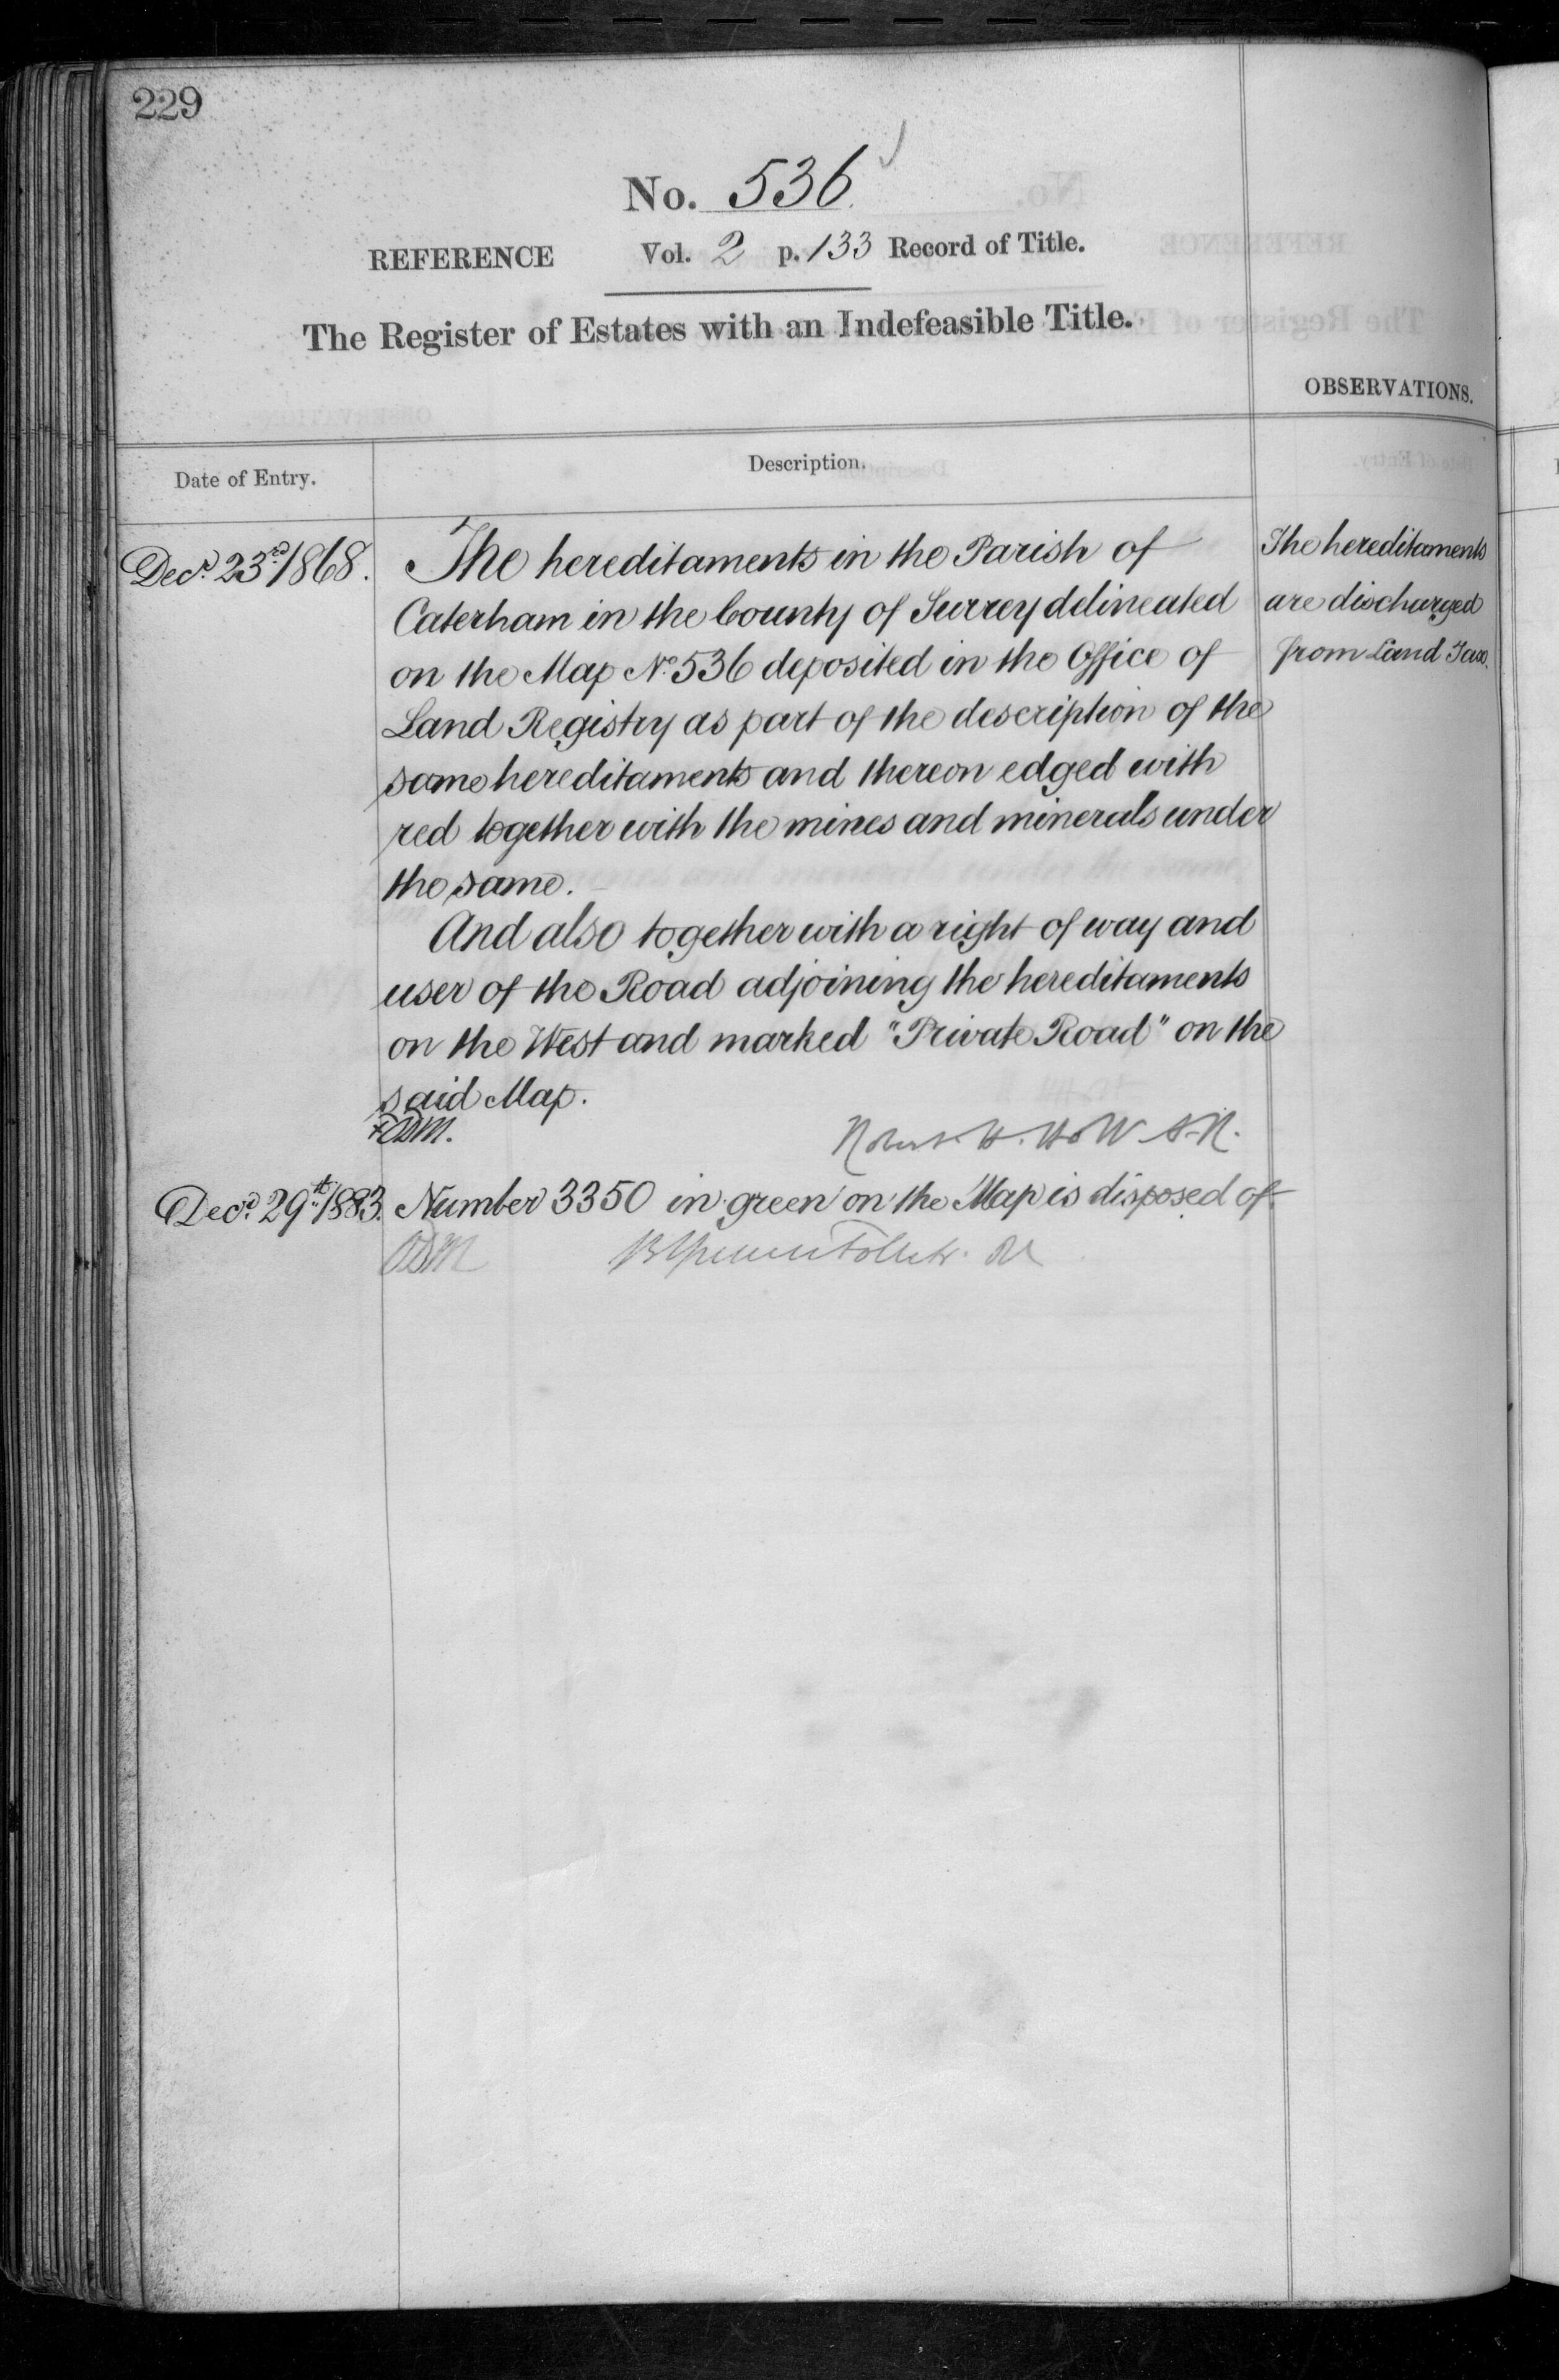 229
No. 536
REFERENCE Vol. 2 p. 133 Record of Title.
The Register of Estates with an Indefeasible Title.
OBSERVATIONS.
Date of Entry.
Description.
Decr. 23rd 1868.
The hereditaments in the Parish of
Caterham in the County of Surrey delineated
on the Map No. 536 deposited in the Office of
Land Registry as part of the description of the
same hereditaments and thereon edged with
red together with the mines and minerals under
the same.
And also together with a right of way and
user of the Road adjoining the hereditaments
on the West and marked "Private Road" on the
said Map.
The hereditaments
are discharged
from Land Tax.
Robert H. Holt A.R.
Decr. 29th 1883. Number 3350 in green on the Map is disposed of.